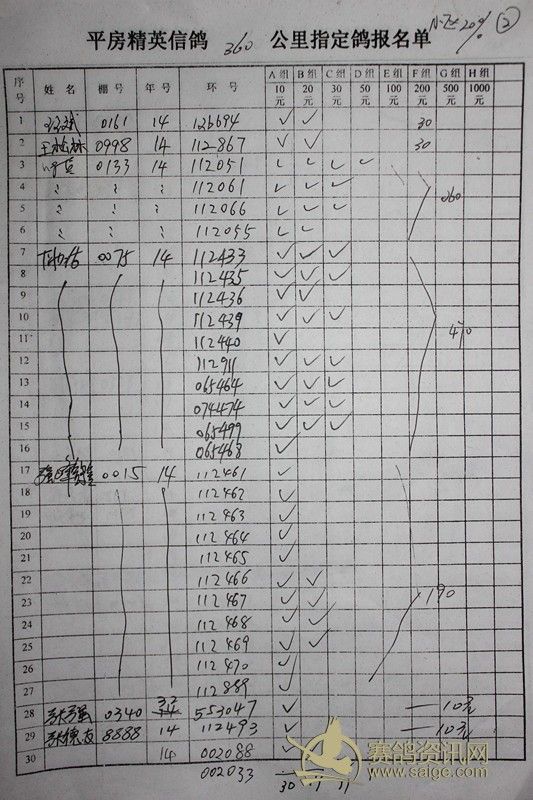 N-Z± 20% ②
平房精英信鸽 360 公里指定鸽报名单
序号 姓名 棚号 年号 环号 A组10元 B组20元 C组30元 D组50元 E组100元 F组200元 G组500元 H组1000元
1 0161 14 126694 ✓ ✓ 30
2 王松林 0998 14 112867 ✓ ✓ 30
3 0133 14 112051 ✓ ✓ ✓ ✓
4 〃 〃 〃 112061 ✓ ✓ ✓ 260
5 〃 〃 〃 112066 ✓ ✓ ✓
6 〃 〃 〃 112055 ✓ ✓
7 0075 14 112433 ✓ ✓ ✓
8 112435 ✓ ✓ ✓
9 112436 ✓ ✓
10 112439 ✓ ✓ ✓
11 112440 ✓ 470
12 112911 ✓ ✓ ✓
13 065464 ✓ ✓ ✓
14 074474 ✓ ✓ ✓
15 065499 ✓ ✓ ✓
16 065463 ✓
17 0015 14 112461 ✓
18 112462 ✓
19 112463 ✓
20 112464 ✓
21 112465 ✓
22 112466 ✓ ✓
23 112467 ✓ ✓ 190
24 112468 ✓ ✓
25 112469 ✓ ✓
26 112470 ✓
27 112889 ✓
28 0340 553047 ✓ — 10元
29 张德友 8888 14 112493 ✓ — 10元
30 14 002088 ✓
002033
30 11 11 1
赛鸽资讯网
www.saige.com